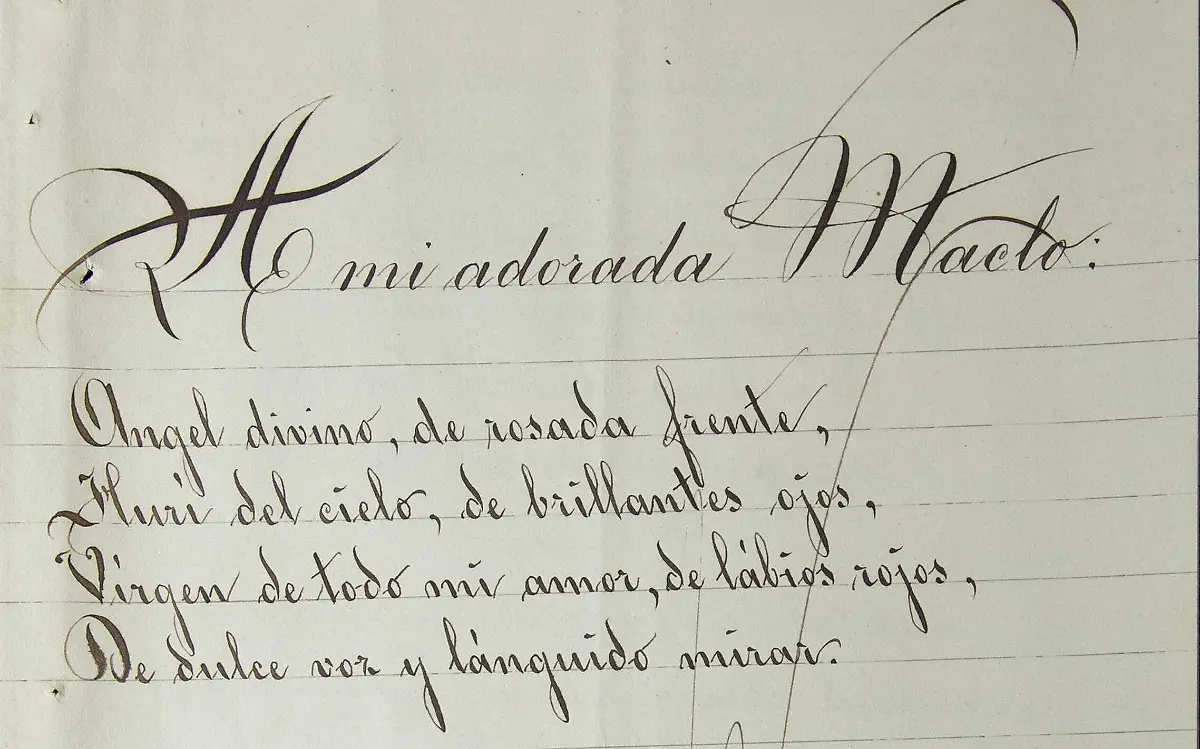 A mi adorada Maclo:
Angel divino, de rosada frente,
Huri del cielo, de brillantes ojos,
Virgen de todo mi amor, de lábios rojos,
De dulce voz y lánguido mirar.